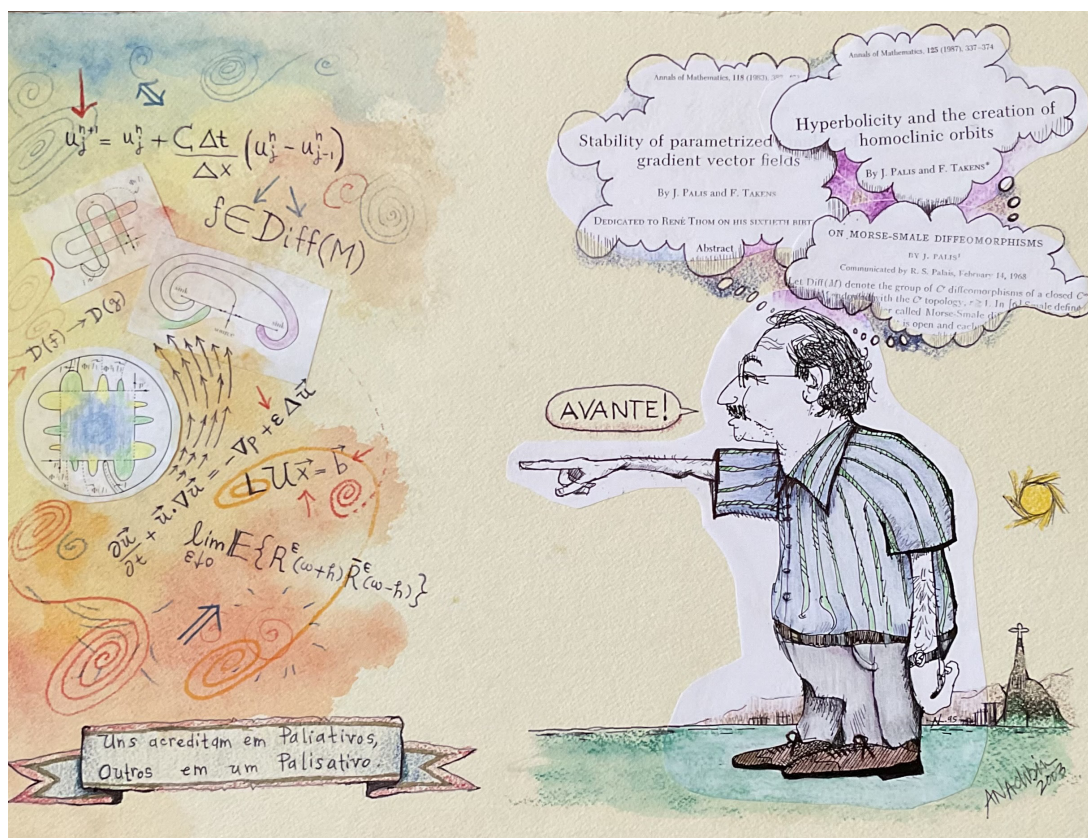 u_j^{n+1} = u_j^n + C Δt / Δx (u_j^n - u_{j-1}^n)
f ∈ Diff(M)
D(f) → D(g)
∂u⃗/∂t + u⃗·∇u⃗ = -∇p + ε Δu⃗
L U x⃗ = b⃗
lim ε↓0 E{R^ε(ω+h) R̄^ε(ω-h)}
Uns acreditam em Paliativos,
Outros em um Palisativo.
Annals of Mathematics, 118 (1983),
Stability of parametrized
gradient vector fields
By J. PALIS and F. TAKENS
DEDICATED TO RENÉ THOM ON HIS SIXTIETH BIRT
Abstract
Annals of Mathematics, 125 (1987), 337-374
Hyperbolicity and the creation of
homoclinic orbits
By J. PALIS and F. TAKENS*
ON MORSE-SMALE DIFFEOMORPHISMS
BY J. PALIS¹
Communicated by R. S. Palais, February 14, 1968
Diff(M) denote the group of C^r diffeomorphisms of a closed C^∞
with the C^r topology, r ≥ 1. In [6] Smale define
called Morse-Smale
is open and each
AVANTE!
2003